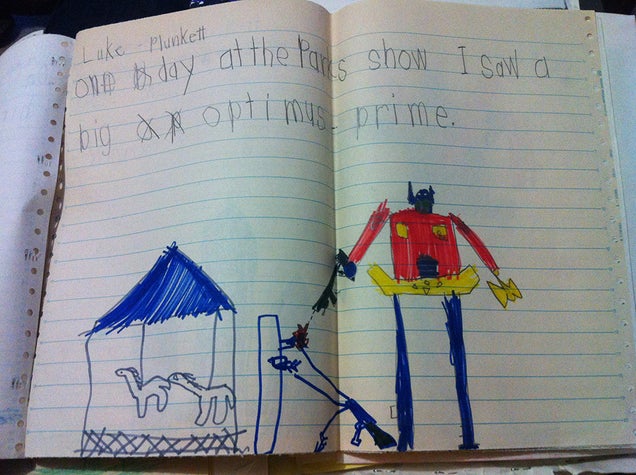 Luke Plunkett
one day at the Parks show I saw a
big optimus prime.